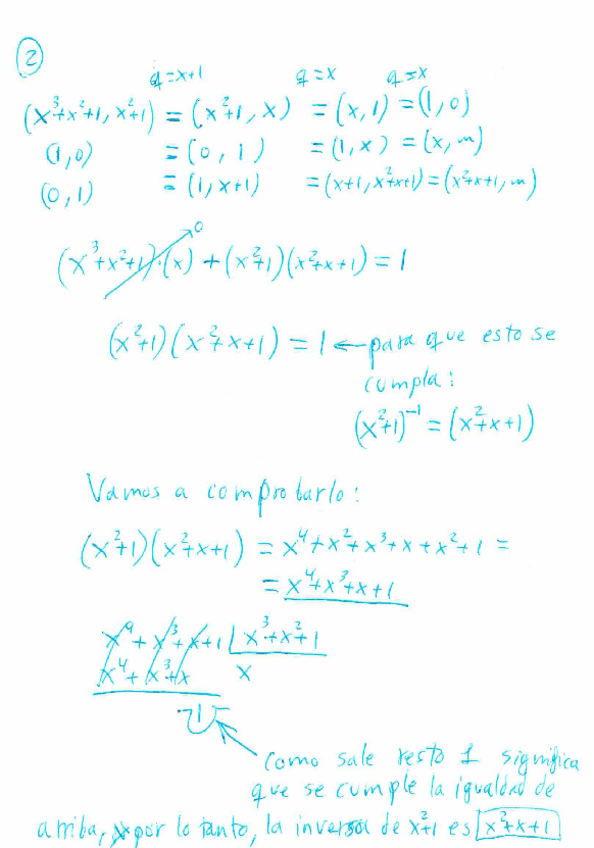 2
q=x+1 q=x q=x
(x³+x²+1, x²+1) = (x²+1, x) = (x, 1) = (1, 0)
(1,0) = (0, 1) = (1, x) = (x, m)
(0,1) = (1, x+1) = (x+1, x²+x+1) = (x²+x+1, m)
0
(x³+x²+1)·(x) + (x²+1)(x²+x+1) = 1
(x²+1)(x²+x+1) = 1 ← para que esto se
cumpla:
(x²+1)⁻¹ = (x²+x+1)
Vamos a comprobarlo:
(x²+1)(x²+x+1) = x⁴+x²+x³+x+x²+1 =
= x⁴+x³+x+1
x⁴+x³+x+1 | x³+x²+1
x⁴+x³+x x
1
como sale resto 1 significa
que se cumple la igualdad de
arriba, por lo tanto, la inversa de x²+1 es x²+x+1